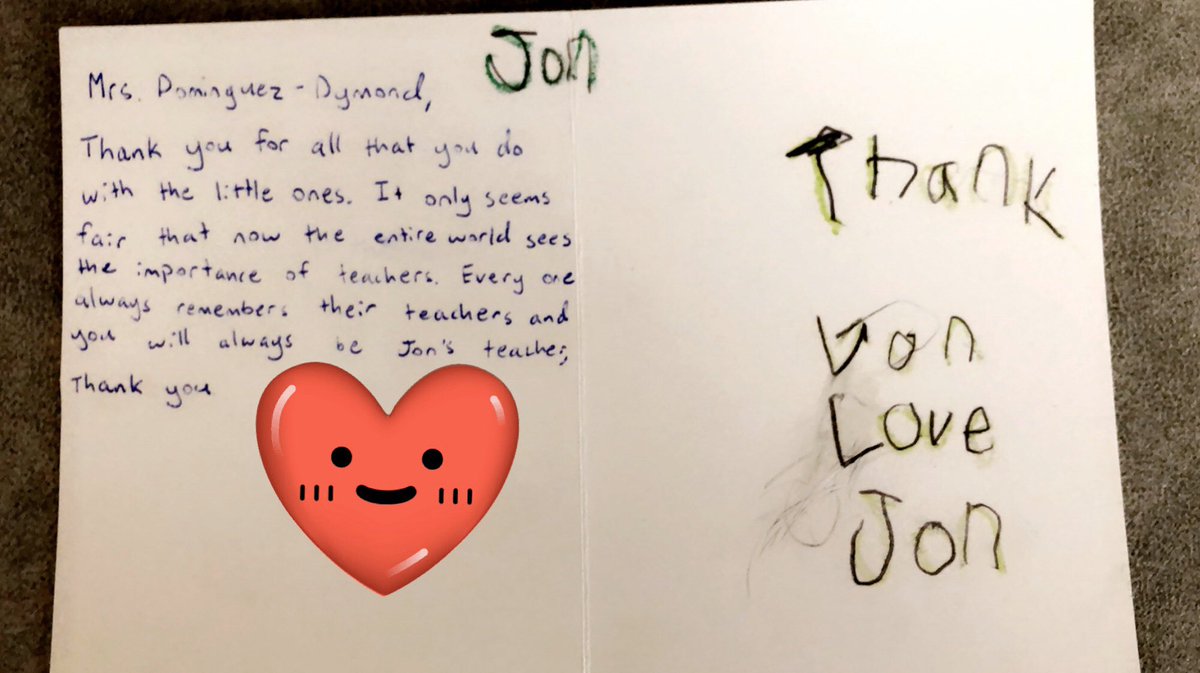 Jon
Mrs. Dominguez-Dymond,
Thank you for all that you do
with the little ones. It only seems
fair that now the entire world sees
the importance of teachers. Every one
always remembers their teachers and
you will always be Jon's teacher,
Thank you
Thank
Von
Love
Jon